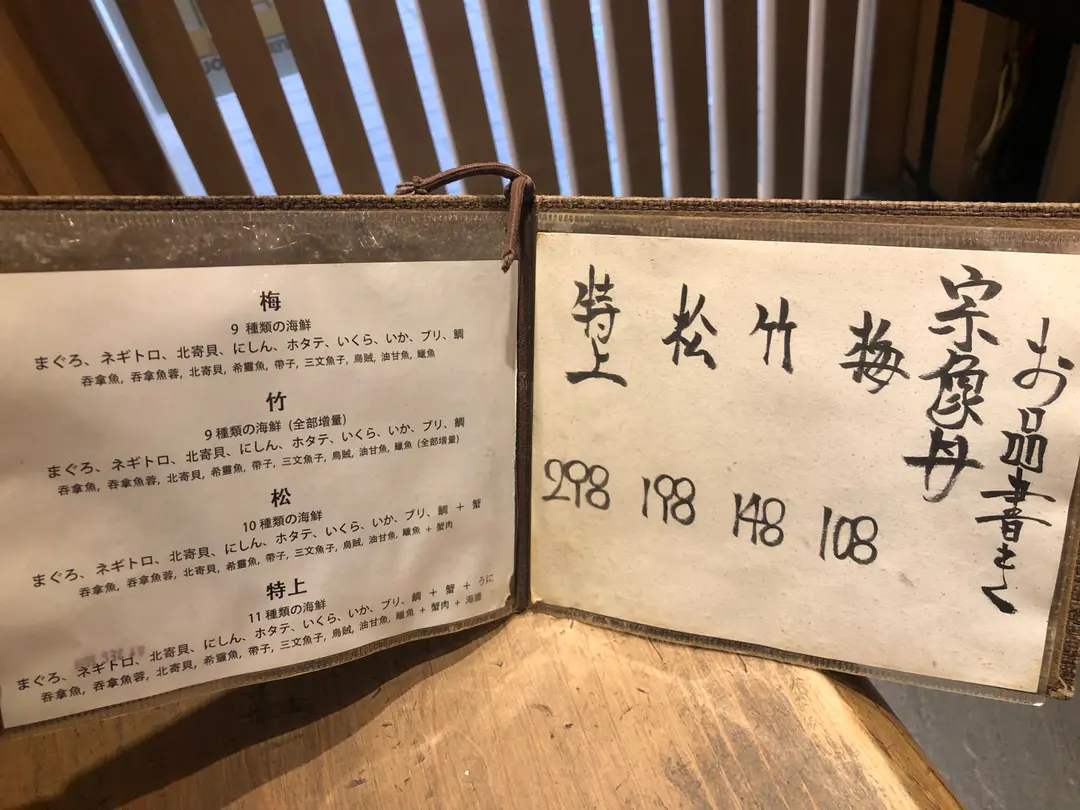 梅
9 種類の海鮮
まぐろ、ネギトロ、北寄貝、にしん、ホタテ、いくら、いか、ブリ、鯛
吞拿魚, 吞拿魚蓉, 北寄貝, 希靈魚, 帶子, 三文魚子, 烏賊, 油甘魚, 鱲魚
竹
9 種類の海鮮 (全部増量)
まぐろ、ネギトロ、北寄貝、にしん、ホタテ、いくら、いか、ブリ、鯛
吞拿魚, 吞拿魚蓉, 北寄貝, 希靈魚, 帶子, 三文魚子, 烏賊, 油甘魚, 鱲魚 (全部増量)
松
10 種類の海鮮
まぐろ、ネギトロ、北寄貝、にしん、ホタテ、いくら、いか、ブリ、鯛 + 蟹
吞拿魚, 吞拿魚蓉, 北寄貝, 希靈魚, 帶子, 三文魚子, 烏賊, 油甘魚, 鱲魚 + 蟹肉
特上
11 種類の海鮮
まぐろ、ネギトロ、北寄貝、にしん、ホタテ、いくら、いか、ブリ、鯛 + 蟹 + うに
吞拿魚, 吞拿魚蓉, 北寄貝, 希靈魚, 帶子, 三文魚子, 烏賊, 油甘魚, 鱲魚 + 蟹肉 + 海膽
お品書き
宗像丼
梅 108
竹 148
松 198
特上 298